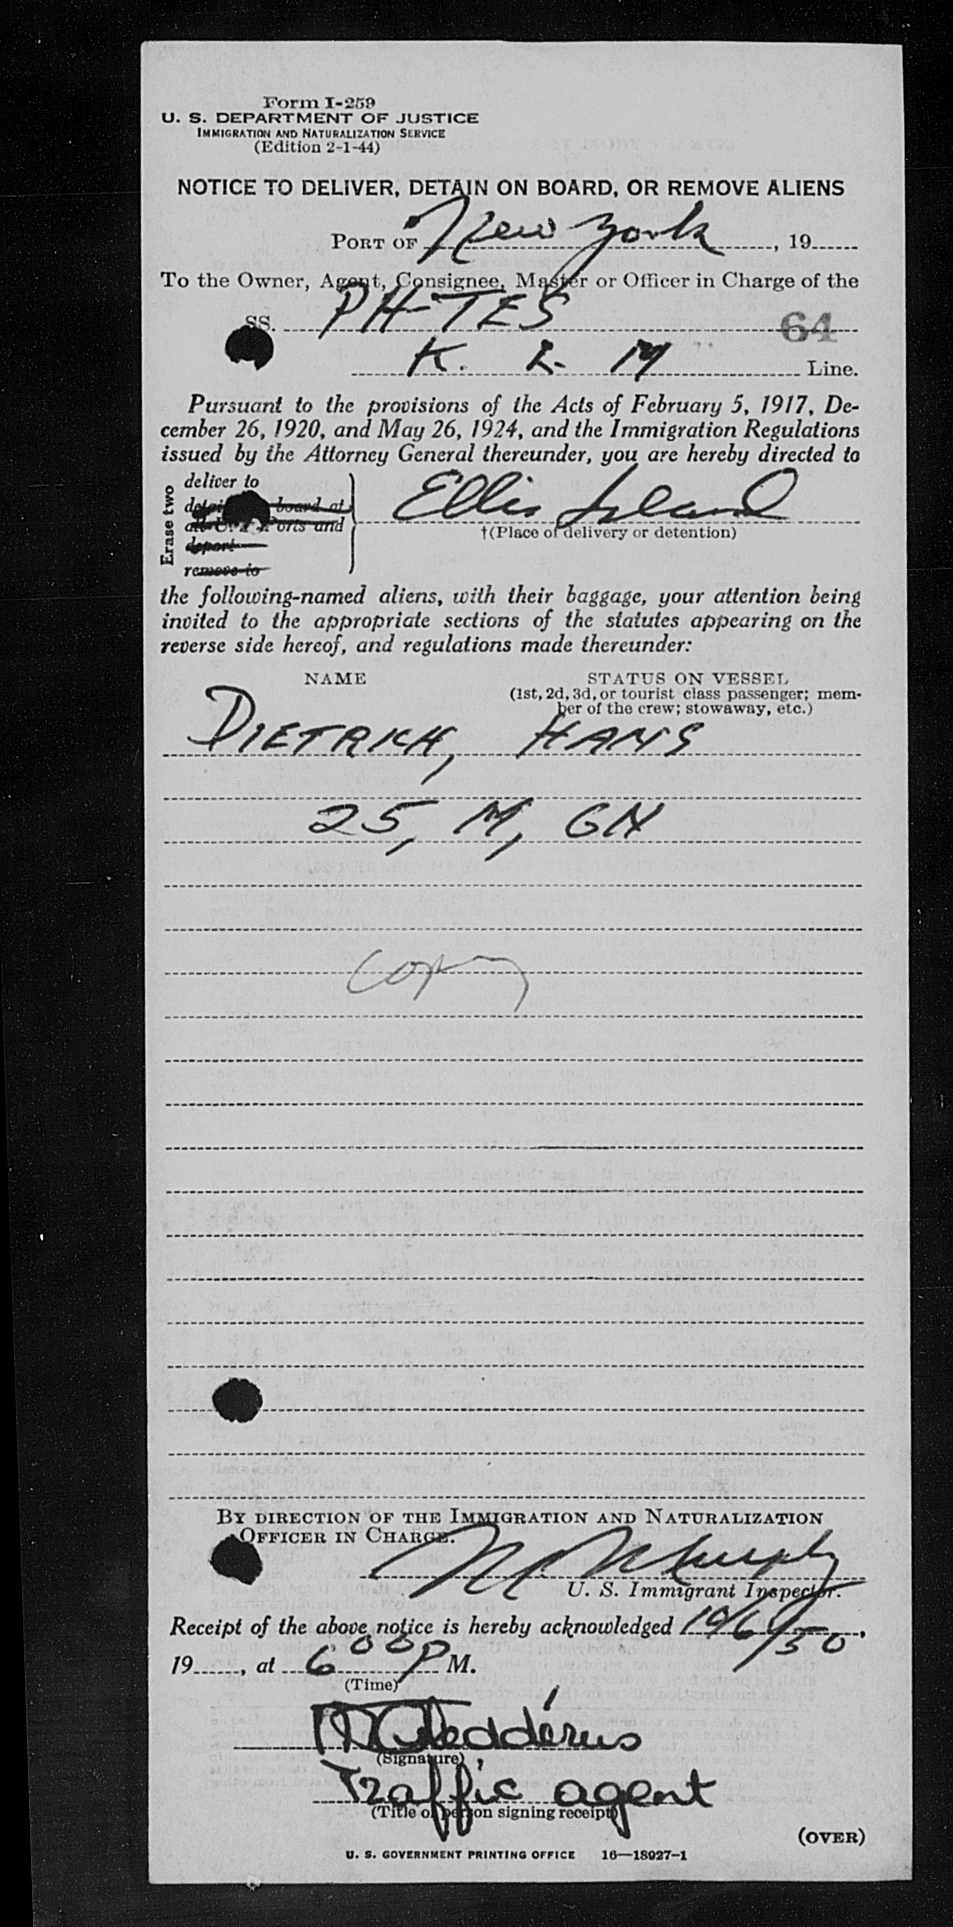 Form I-259
U. S. DEPARTMENT OF JUSTICE
IMMIGRATION AND NATURALIZATION SERVICE
(Edition 2-1-44)
NOTICE TO DELIVER, DETAIN ON BOARD, OR REMOVE ALIENS
PORT OF New York, 19
To the Owner, Agent, Consignee, Master or Officer in Charge of the
SS. PH-TES 64
K. L. M Line.
Pursuant to the provisions of the Acts of February 5, 1917, De-
cember 26, 1920, and May 26, 1924, and the Immigration Regulations
issued by the Attorney General thereunder, you are hereby directed to
Erase two
deliver to
board at
all U. S. Ports and
deport
remove to
Ellis Island
†(Place of delivery or detention)
the following-named aliens, with their baggage, your attention being
invited to the appropriate sections of the statutes appearing on the
reverse side hereof, and regulations made thereunder:
NAME STATUS ON VESSEL
(1st, 2d, 3d, or tourist class passenger; mem-
ber of the crew; stowaway, etc.)
DIETRICH, HANS
25, M, GN
Copy
BY DIRECTION OF THE IMMIGRATION AND NATURALIZATION
OFFICER IN CHARGE.
Murphy
U. S. Immigrant Inspector.
Receipt of the above notice is hereby acknowledged 10/6/50,
19, at 6 00 P M.
(Time)
(Signature)
Traffic agent
(Title of person signing receipt)
(OVER)
U. S. GOVERNMENT PRINTING OFFICE 16—18027-1